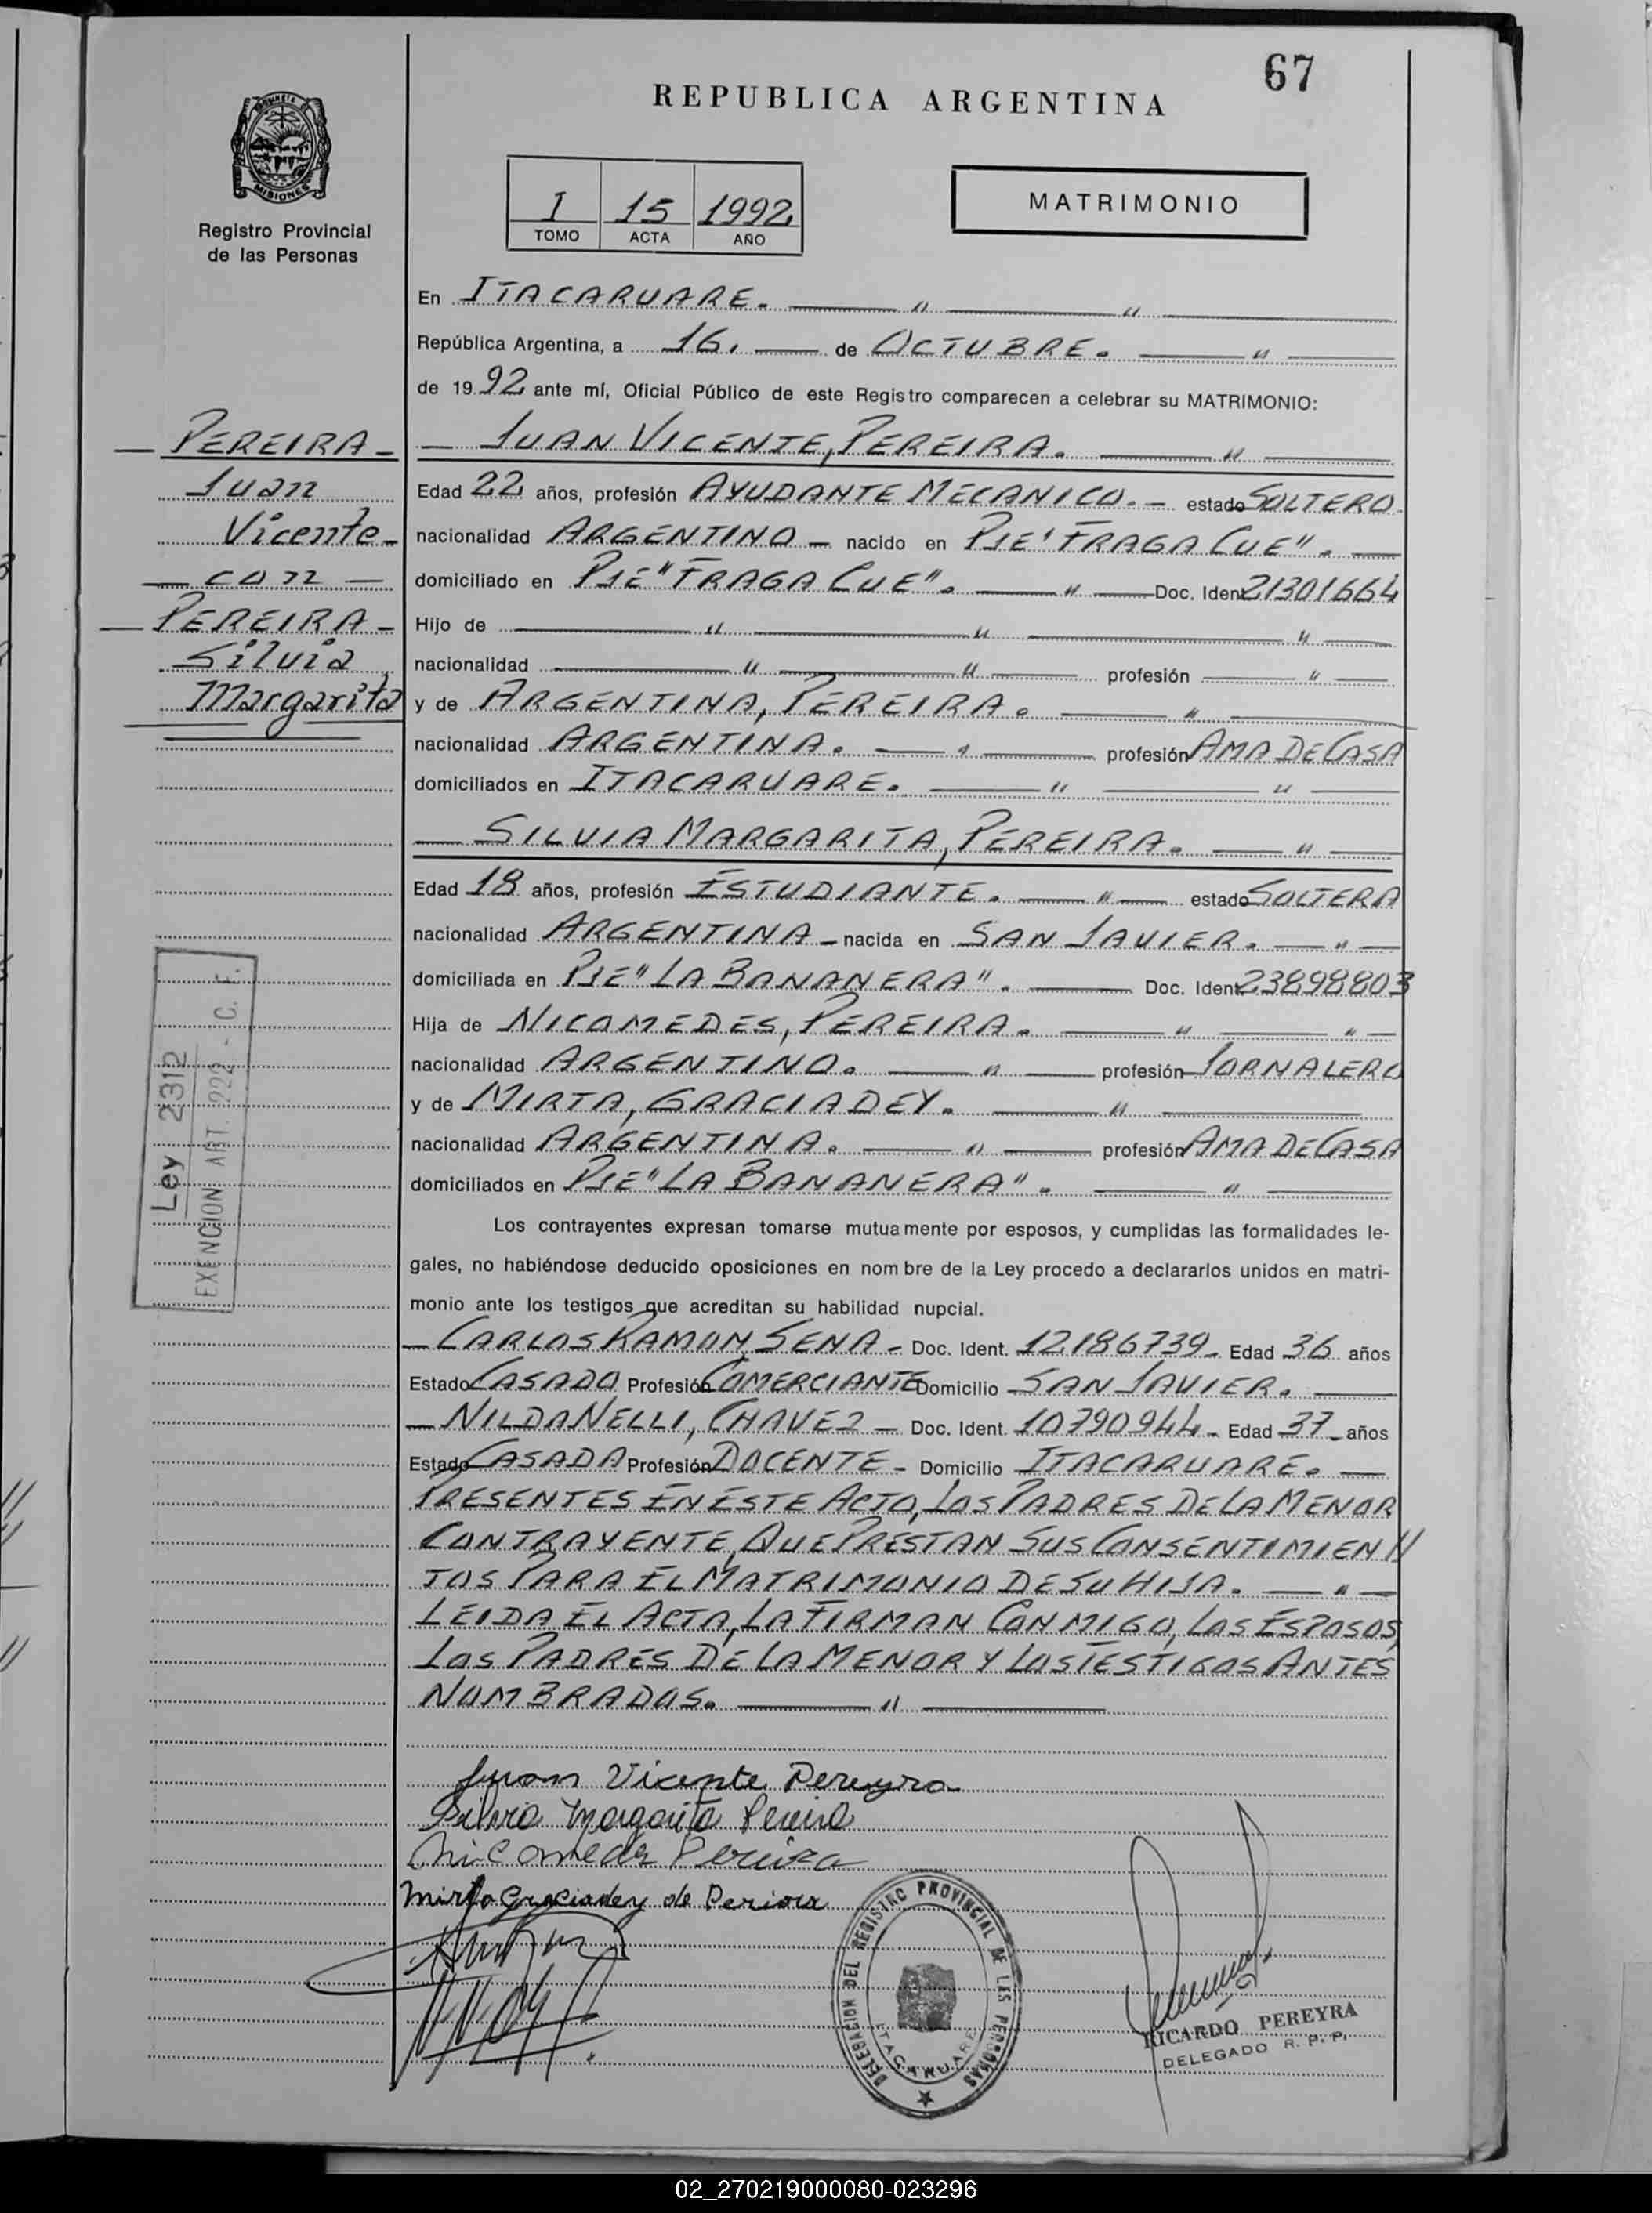 67
REPUBLICA ARGENTINA
MISIONES
Registro Provincial
de las Personas
I 15 1992
TOMO ACTA AÑO
MATRIMONIO
En ITACARUARE. — " — " —
República Argentina, a 16. — de OCTUBRE. — " —
de 1992 ante mí, Oficial Público de este Registro comparecen a celebrar su MATRIMONIO:
— PEREIRA —
Juan
Vicente —
— con —
— PEREIRA —
Silvia
Margarita
— JUAN VICENTE, PEREIRA. — " —
Edad 22 años, profesión AYUDANTE MECANICO. — estado SOLTERO
nacionalidad ARGENTINO — nacido en PJE "FRAGA CUE". —
domiciliado en PJE "FRAGA CUE". — " — Doc. Ident. 21301664
Hijo de — " — " — " —
nacionalidad — " — " — profesión — " —
y de ARGENTINA, PEREIRA. — " —
nacionalidad ARGENTINA. — " — profesión AMA DE CASA
domiciliados en ITACARUARE. — " — " —
— SILVIA MARGARITA, PEREIRA. — " —
Edad 18 años, profesión ESTUDIANTE. — " — estado SOLTERA
nacionalidad ARGENTINA — nacida en SAN JAVIER. — " —
domiciliada en PJE "LA BANANERA". — Doc. Ident. 23898803
Hija de NICOMEDES, PEREIRA. — " — " —
nacionalidad ARGENTINO. — " — profesión JORNALERO
y de MIRTA, GRACIADEY. — " —
nacionalidad ARGENTINA. — " — profesión AMA DE CASA
domiciliados en PJE "LA BANANERA". — " —
Ley 2312
EXENCION ART. 222 - C. F.
Los contrayentes expresan tomarse mutuamente por esposos, y cumplidas las formalidades le-
gales, no habiéndose deducido oposiciones en nombre de la Ley procedo a declararlos unidos en matri-
monio ante los testigos que acreditan su habilidad nupcial.
— CARLOS RAMON, SENA — Doc. Ident. 12186739 — Edad 36 años
Estado CASADO Profesión COMERCIANTE Domicilio SAN JAVIER. —
— NILDA NELLI, CHAVEZ — Doc. Ident. 10790944 — Edad 37 — años
Estado CASADA Profesión DOCENTE — Domicilio ITACARUARE. —
PRESENTES EN ESTE ACTO, LOS PADRES DE LA MENOR
CONTRAYENTE, QUE PRESTAN SUS CONSENTIMIEN//
TOS PARA EL MATRIMONIO DE SU HIJA. — " —
LEIDA EL ACTA, LA FIRMAN CONMIGO, LOS ESPOSOS,
LOS PADRES DE LA MENOR Y LOS TESTIGOS ANTES
NOMBRADOS. — " —
Juan Vicente Pereyra
Silvia Margarita Pereira
Nicomedes Pereira
Mirta Graciadey de Periora
DELEGACION DEL REGISTRO PROVINCIAL DE LAS PERSONAS
ITACARUARE
RICARDO PEREYRA
DELEGADO R. P. P.
02_270219000080-023296